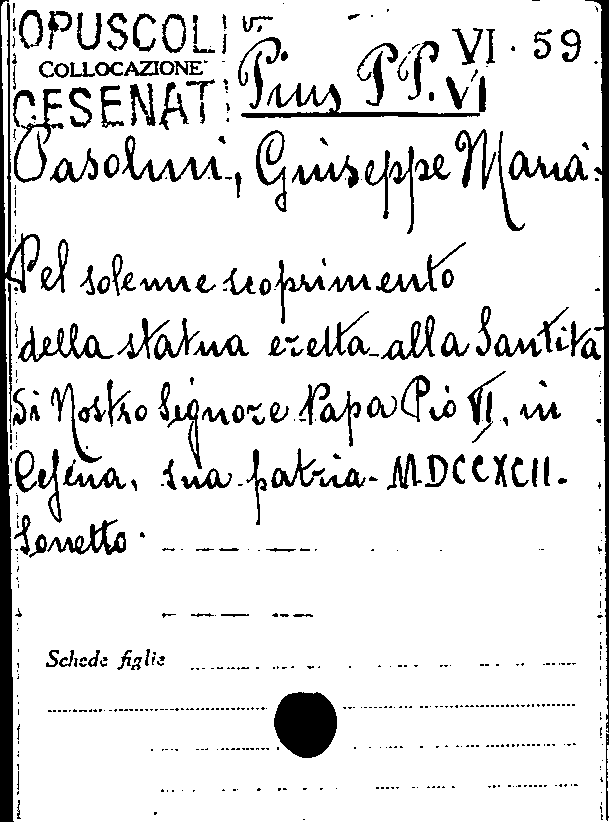 OPUSCOLI
COLLOCAZIONE
CESENATI
v.
Pius PP. VI
VI . 59
Pasolini, Giuseppe Maria.
Pel solenne scoprimento
della statua eretta alla Santità
di Nostro Signore Papa Pio VI, in
Cesena, sua patria. MDCCXCII.
Sonetto.
Schede figlie